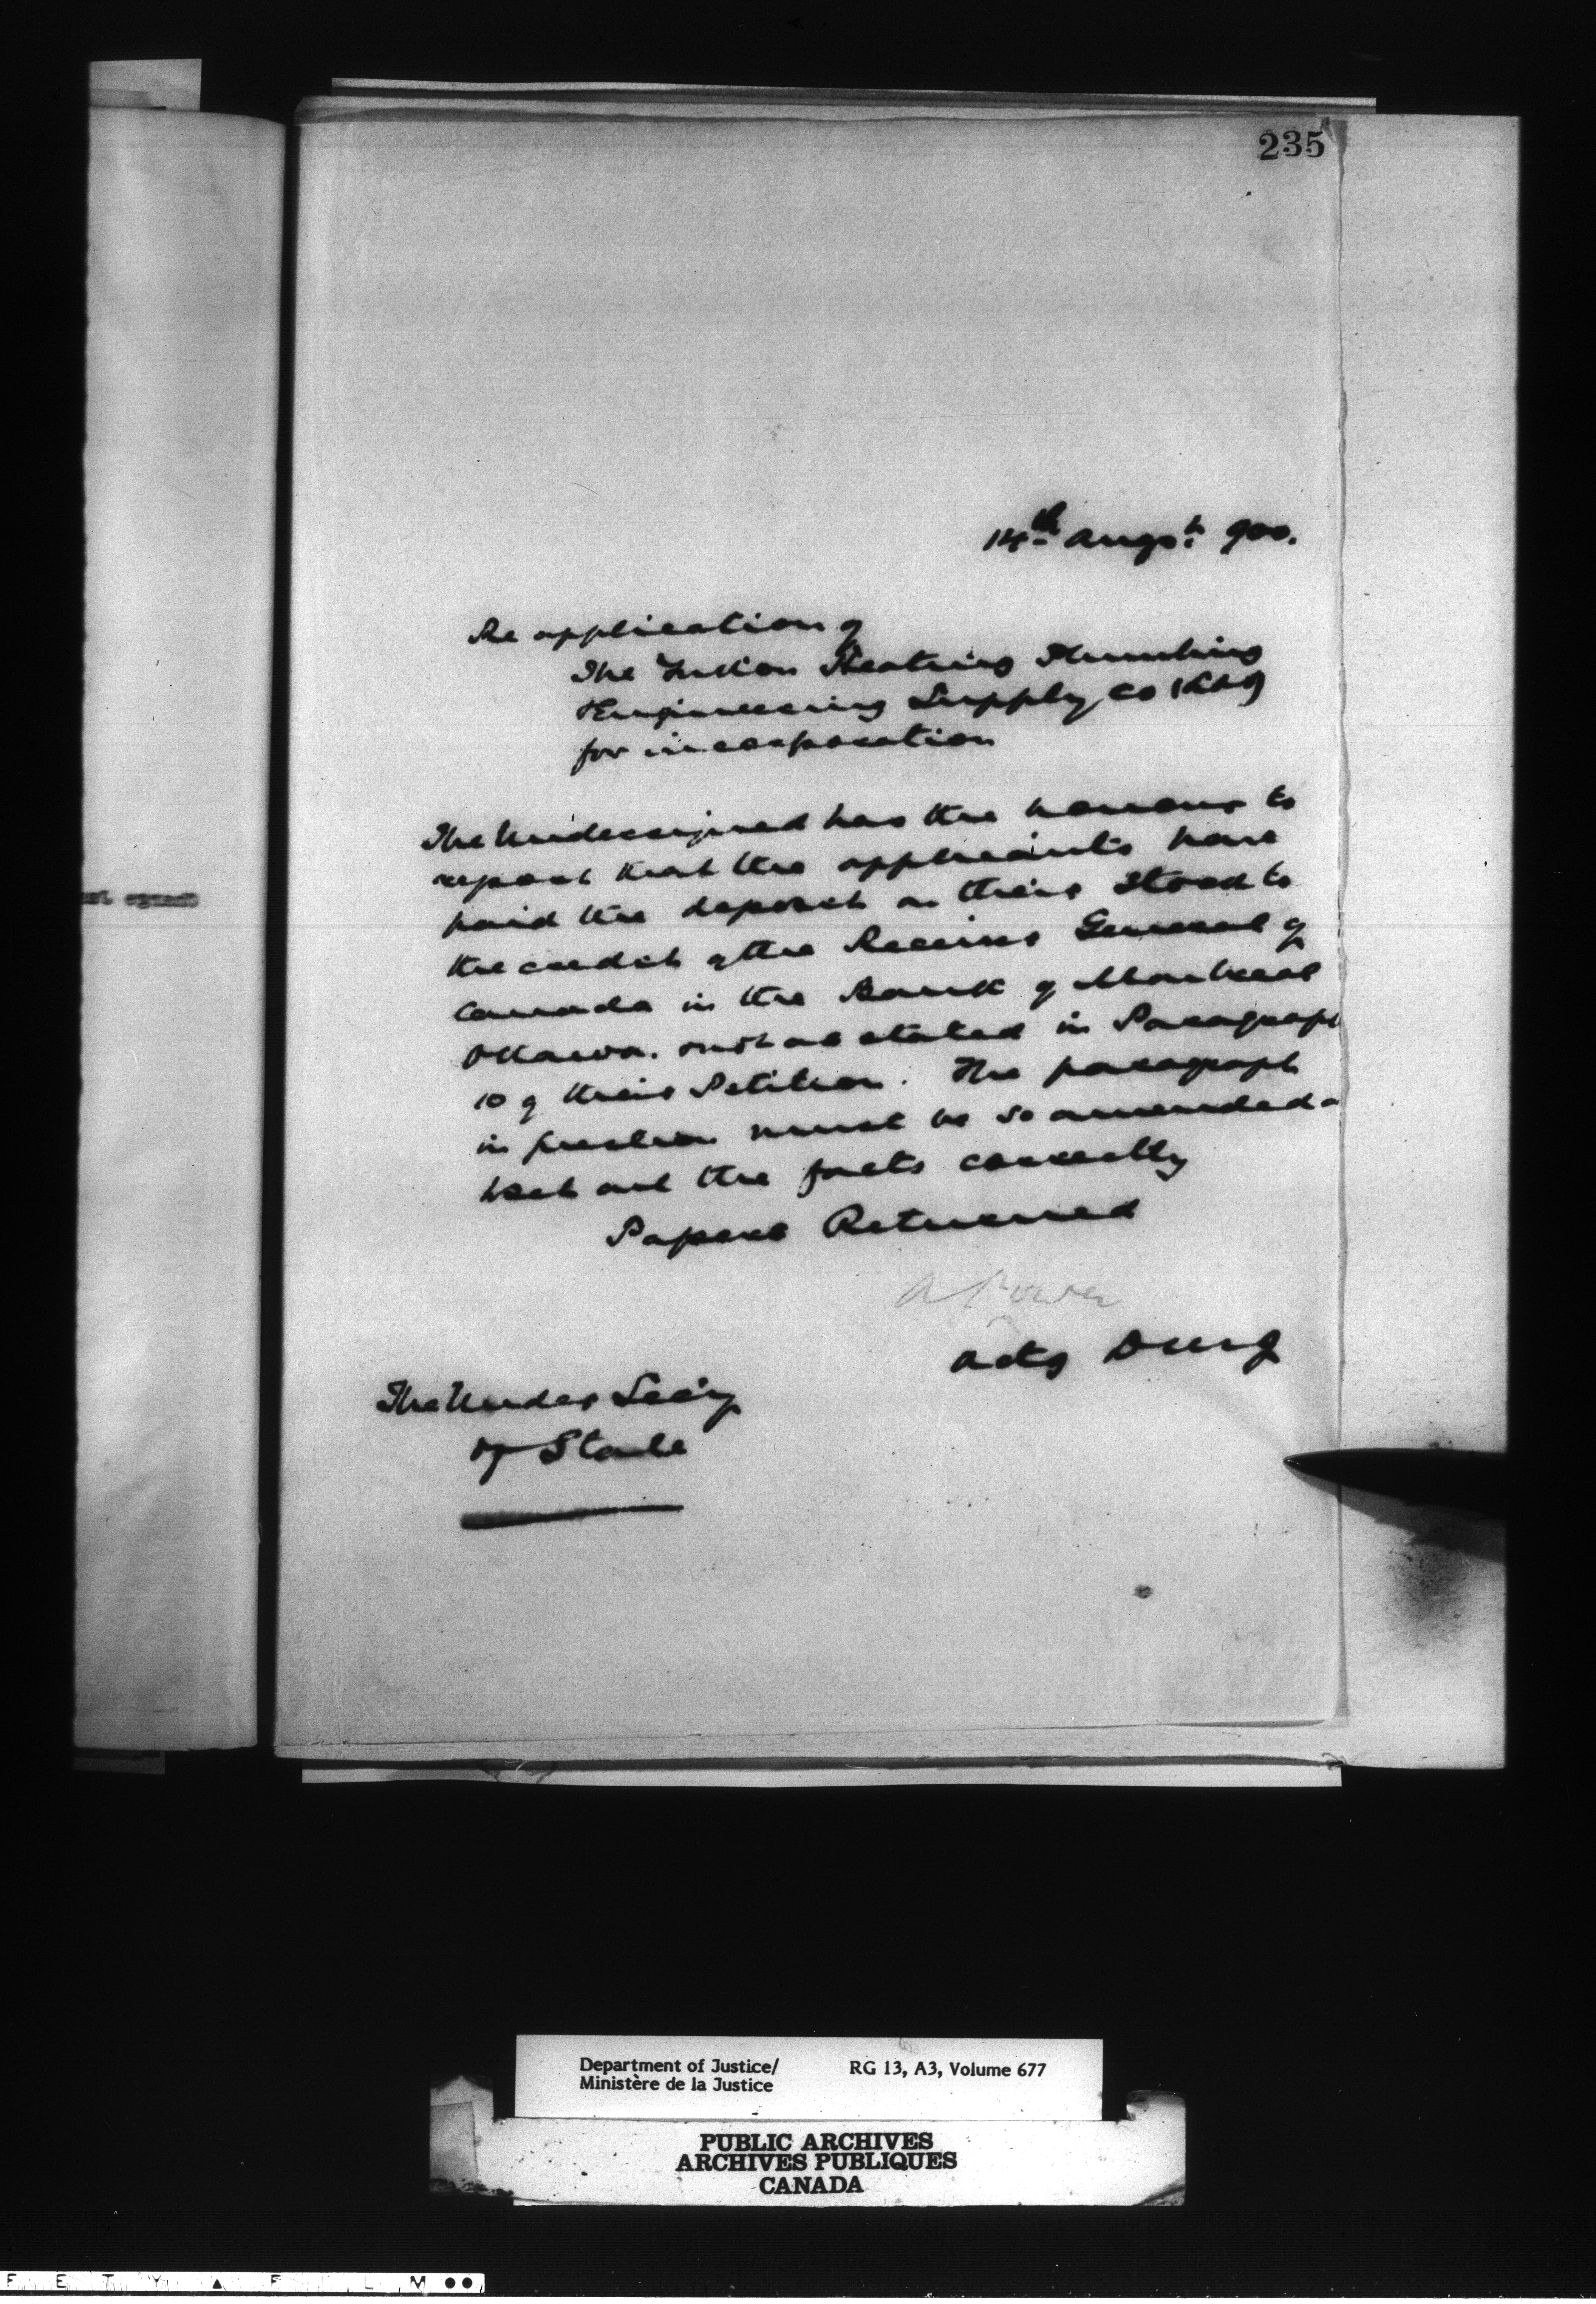 235
14th Augst. 900.
Re application of
The Yukon Heating Plumbing
Engineering Supply Co (Ltd)
for incorporation
The Undersigned has the honour to
report that the applicants have
paid the deposit on their Stock to
the credit of the Receiver General of
Canada in the Bank of Montreal
Ottawa. not as stated in Paragraph
10 of their Petition. The paragraph
in question must be so amended as
to set out the facts correctly
Papers Returned
A Power
Actg D M of J
The Under Sec'y
of State
Department of Justice/ RG 13, A3, Volume 677
Ministère de la Justice
PUBLIC ARCHIVES
ARCHIVES PUBLIQUES
CANADA